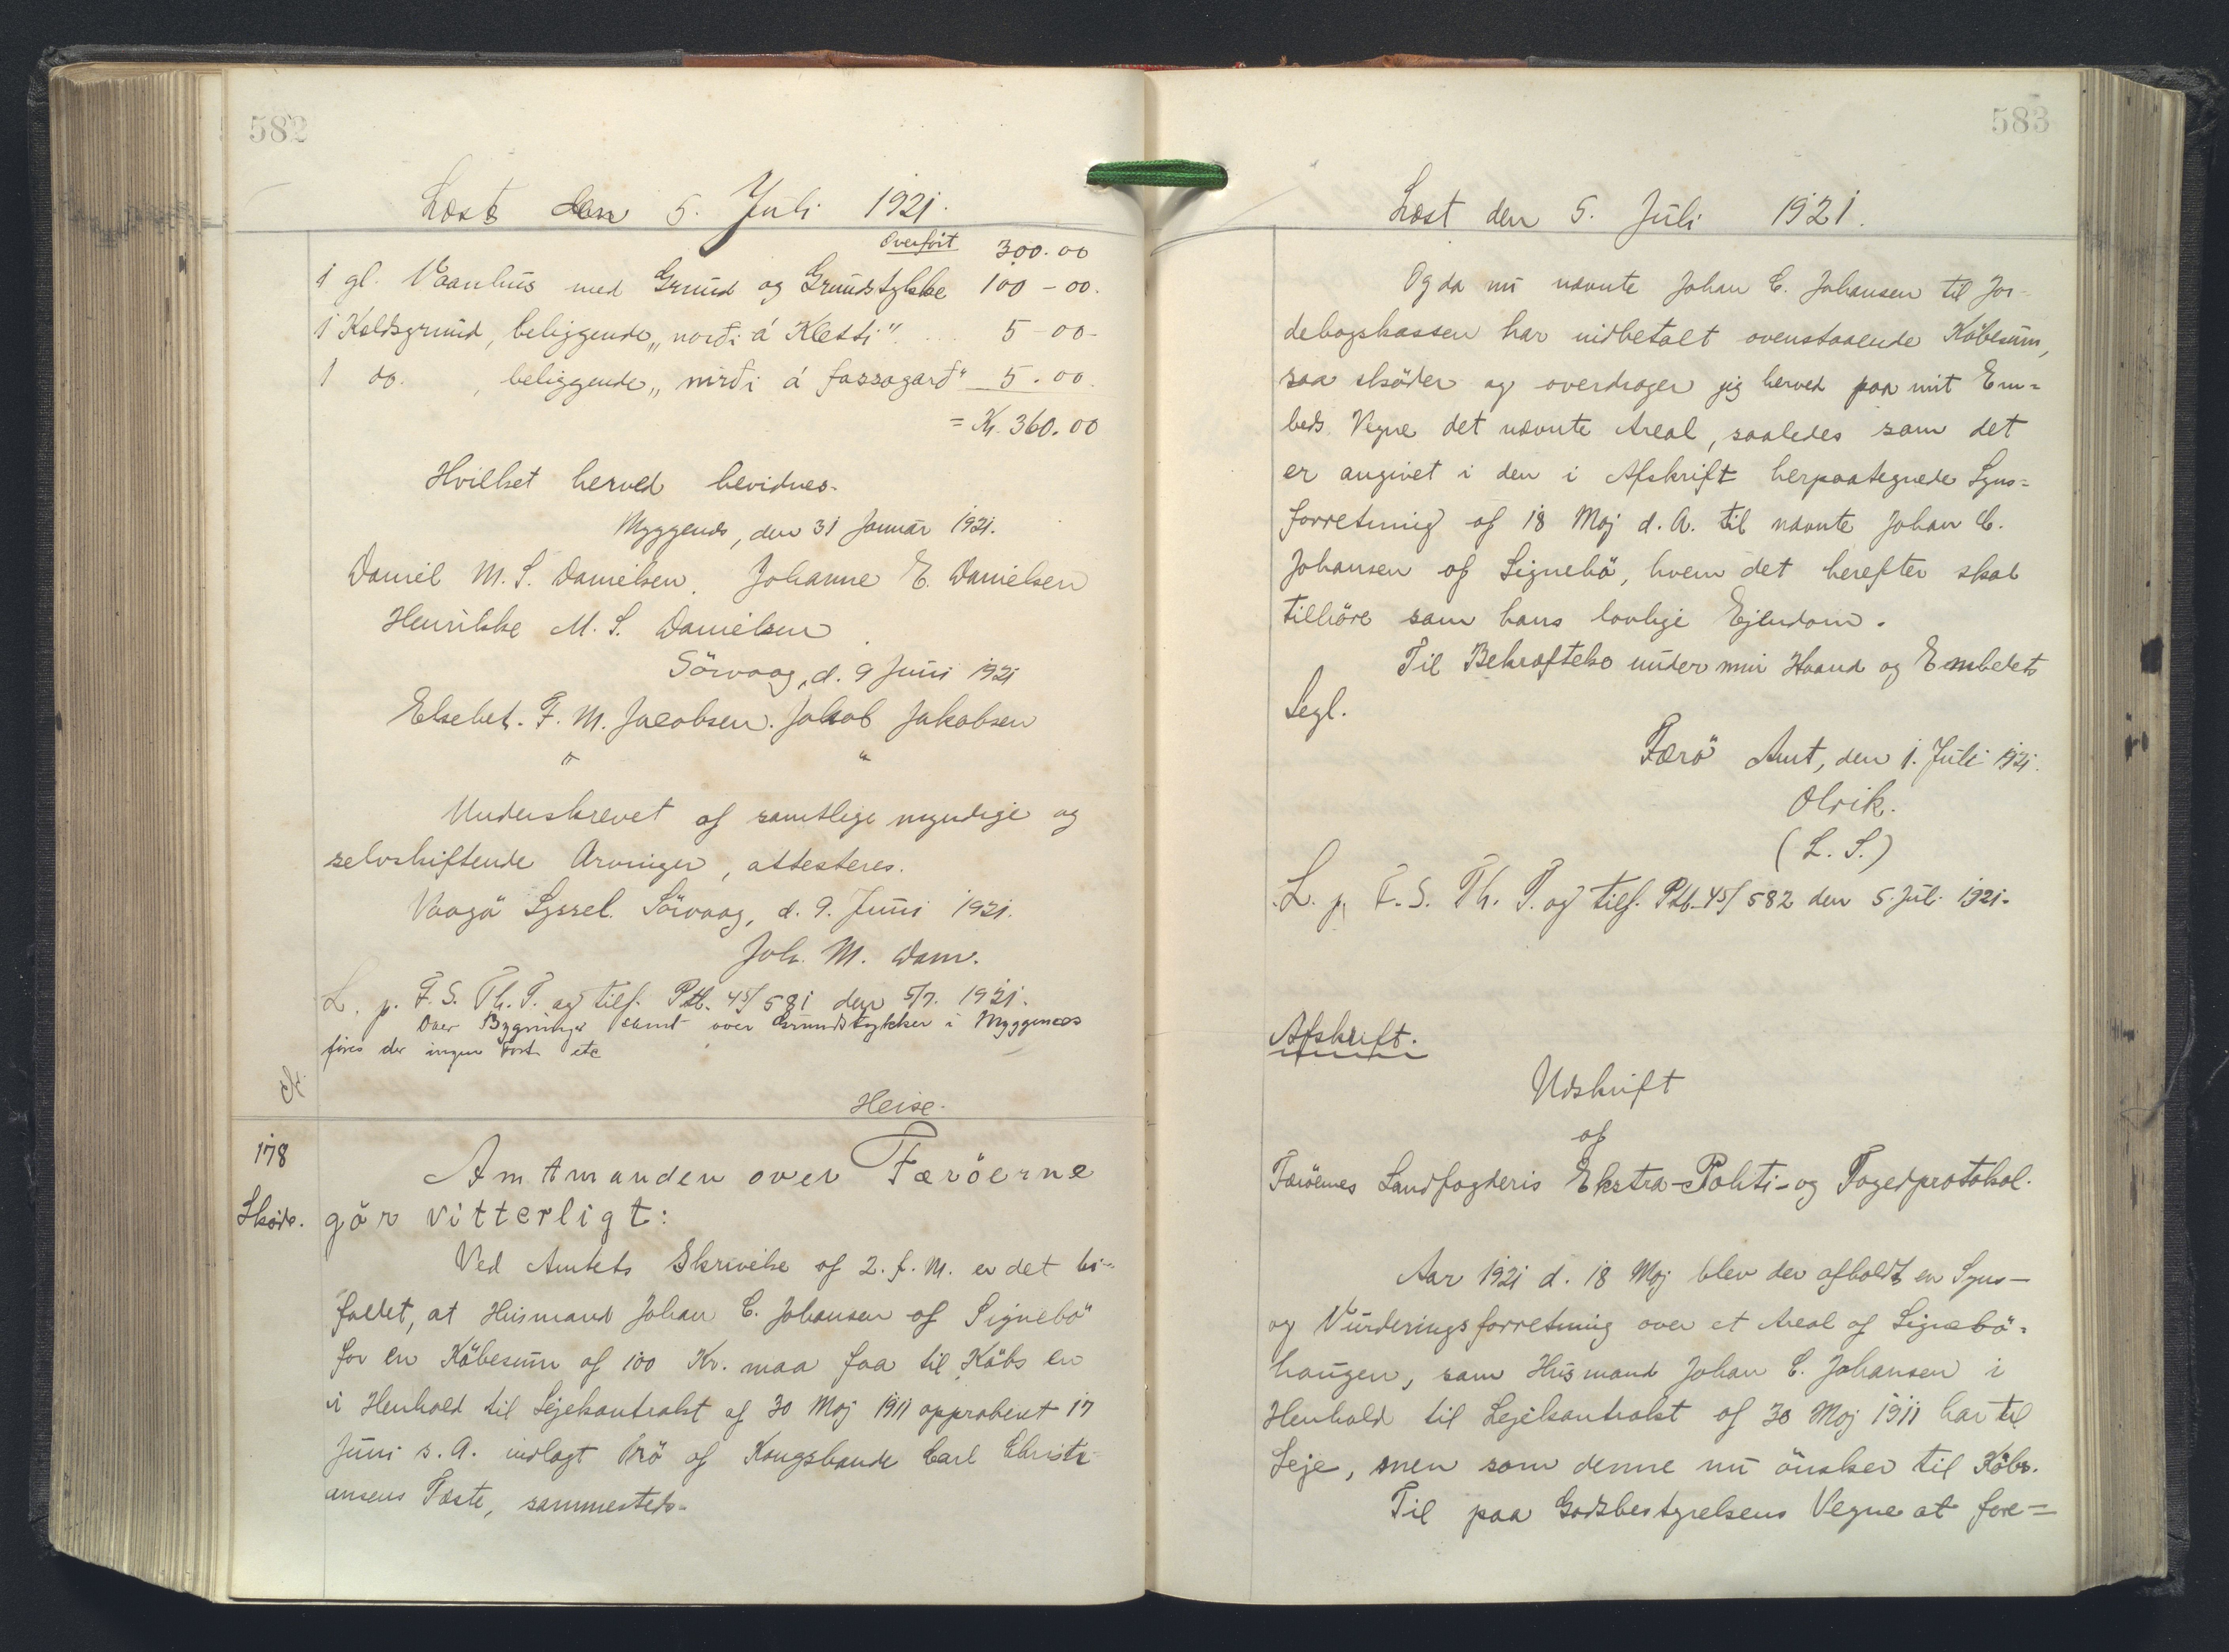 582
Læst den 5. Juli 1921.
Overført 300.00
1 gl. Vaanhus med Grund og Grundstykke 100-00.
1 Kaldsgrund, beliggende „norði á Kletti" . . . 5-00-
1 do. , beliggende „nirði á fassagarð" 5.00.
= Kr. 360.00
Hvilket herved bevidnes.
Myggenæs, den 31 Januar 1921.
Daniel M. S. Danielsen. Johanne E. Danielsen
Henrikke M. S. Danielsen
Sörvaag, d. 9 Juni 1921
Elsebet. F. M. Jacobsen. Jakob Jakobsen
" "
Underskrevet af samtlige myndige og
selvskiftende Arvinger, attesteres.
Vaagö Syssel. Sörvaag, d. 9. Juni 1921.
Joh. M. Dam.
L. p. F. S. Th. T. og tilf. Ptb. 45/581 den 5/7. 1921.
Over Bygninger samt over Grundstykker i Myggenæs
föres der ingen Fort. etc
Heise.
178
Sköde.
Amtmanden over Færöerne
gör vitterligt:
Ved Amtets Skrivelse af 2. f. M. er det bi-
faldet, at Husmand Johan C. Johansen af Signebö
for en Köbesum af 100 Kr. maa faa til Köbs en
i Henhold til Lejekontrakt af 30 Maj 1911 approberet 17
Juni s. A. indlagt Trö af Kongsbonde Carl Christi-
ansens Fæste, sammesteds.
583
Læst den 5. Juli 1921.
Og da nu nævnte Johan C. Johansen til Jor-
debogskassen har indbetalt ovenstaaende Köbesum,
saa sköder og overdrager jeg herved paa mit Em=
beds Vegne det nævnte Areal, saaledes som det
er angivet i den i Afskrift herpaategnede Syns=
forretning af 18 Maj d. A. til nævnte Johan C.
Johansen af Signebö, hvem det herefter skal
tilhöre som hans lovlige Ejendom.
Til Bekræftelse under min Haand og Embedets
Segl.
Færö Amt, den 1. Juli 1921.
Olrik.
(L. S.)
L. p. F. S. Th. T. og tilf. Ptb. 45/582 den 5. Jul. 1921.
Afskrift.
Udskrift
af
Færöernes Landfogderis Ekstra-Politi- og Fogedprotokol.
Aar 1921 d. 18 Maj blev der afholdt en Syns-
og Vurderingsforretning over et Areal af Signebö-
haugen, som Husmand Johan C. Johansen i
Henhold til Lejekontrakt af 30 Maj 1911 har til
Leje, men som denne nu önsker til Köbs.
Til paa Godsbestyrelsens Vegne at fore=